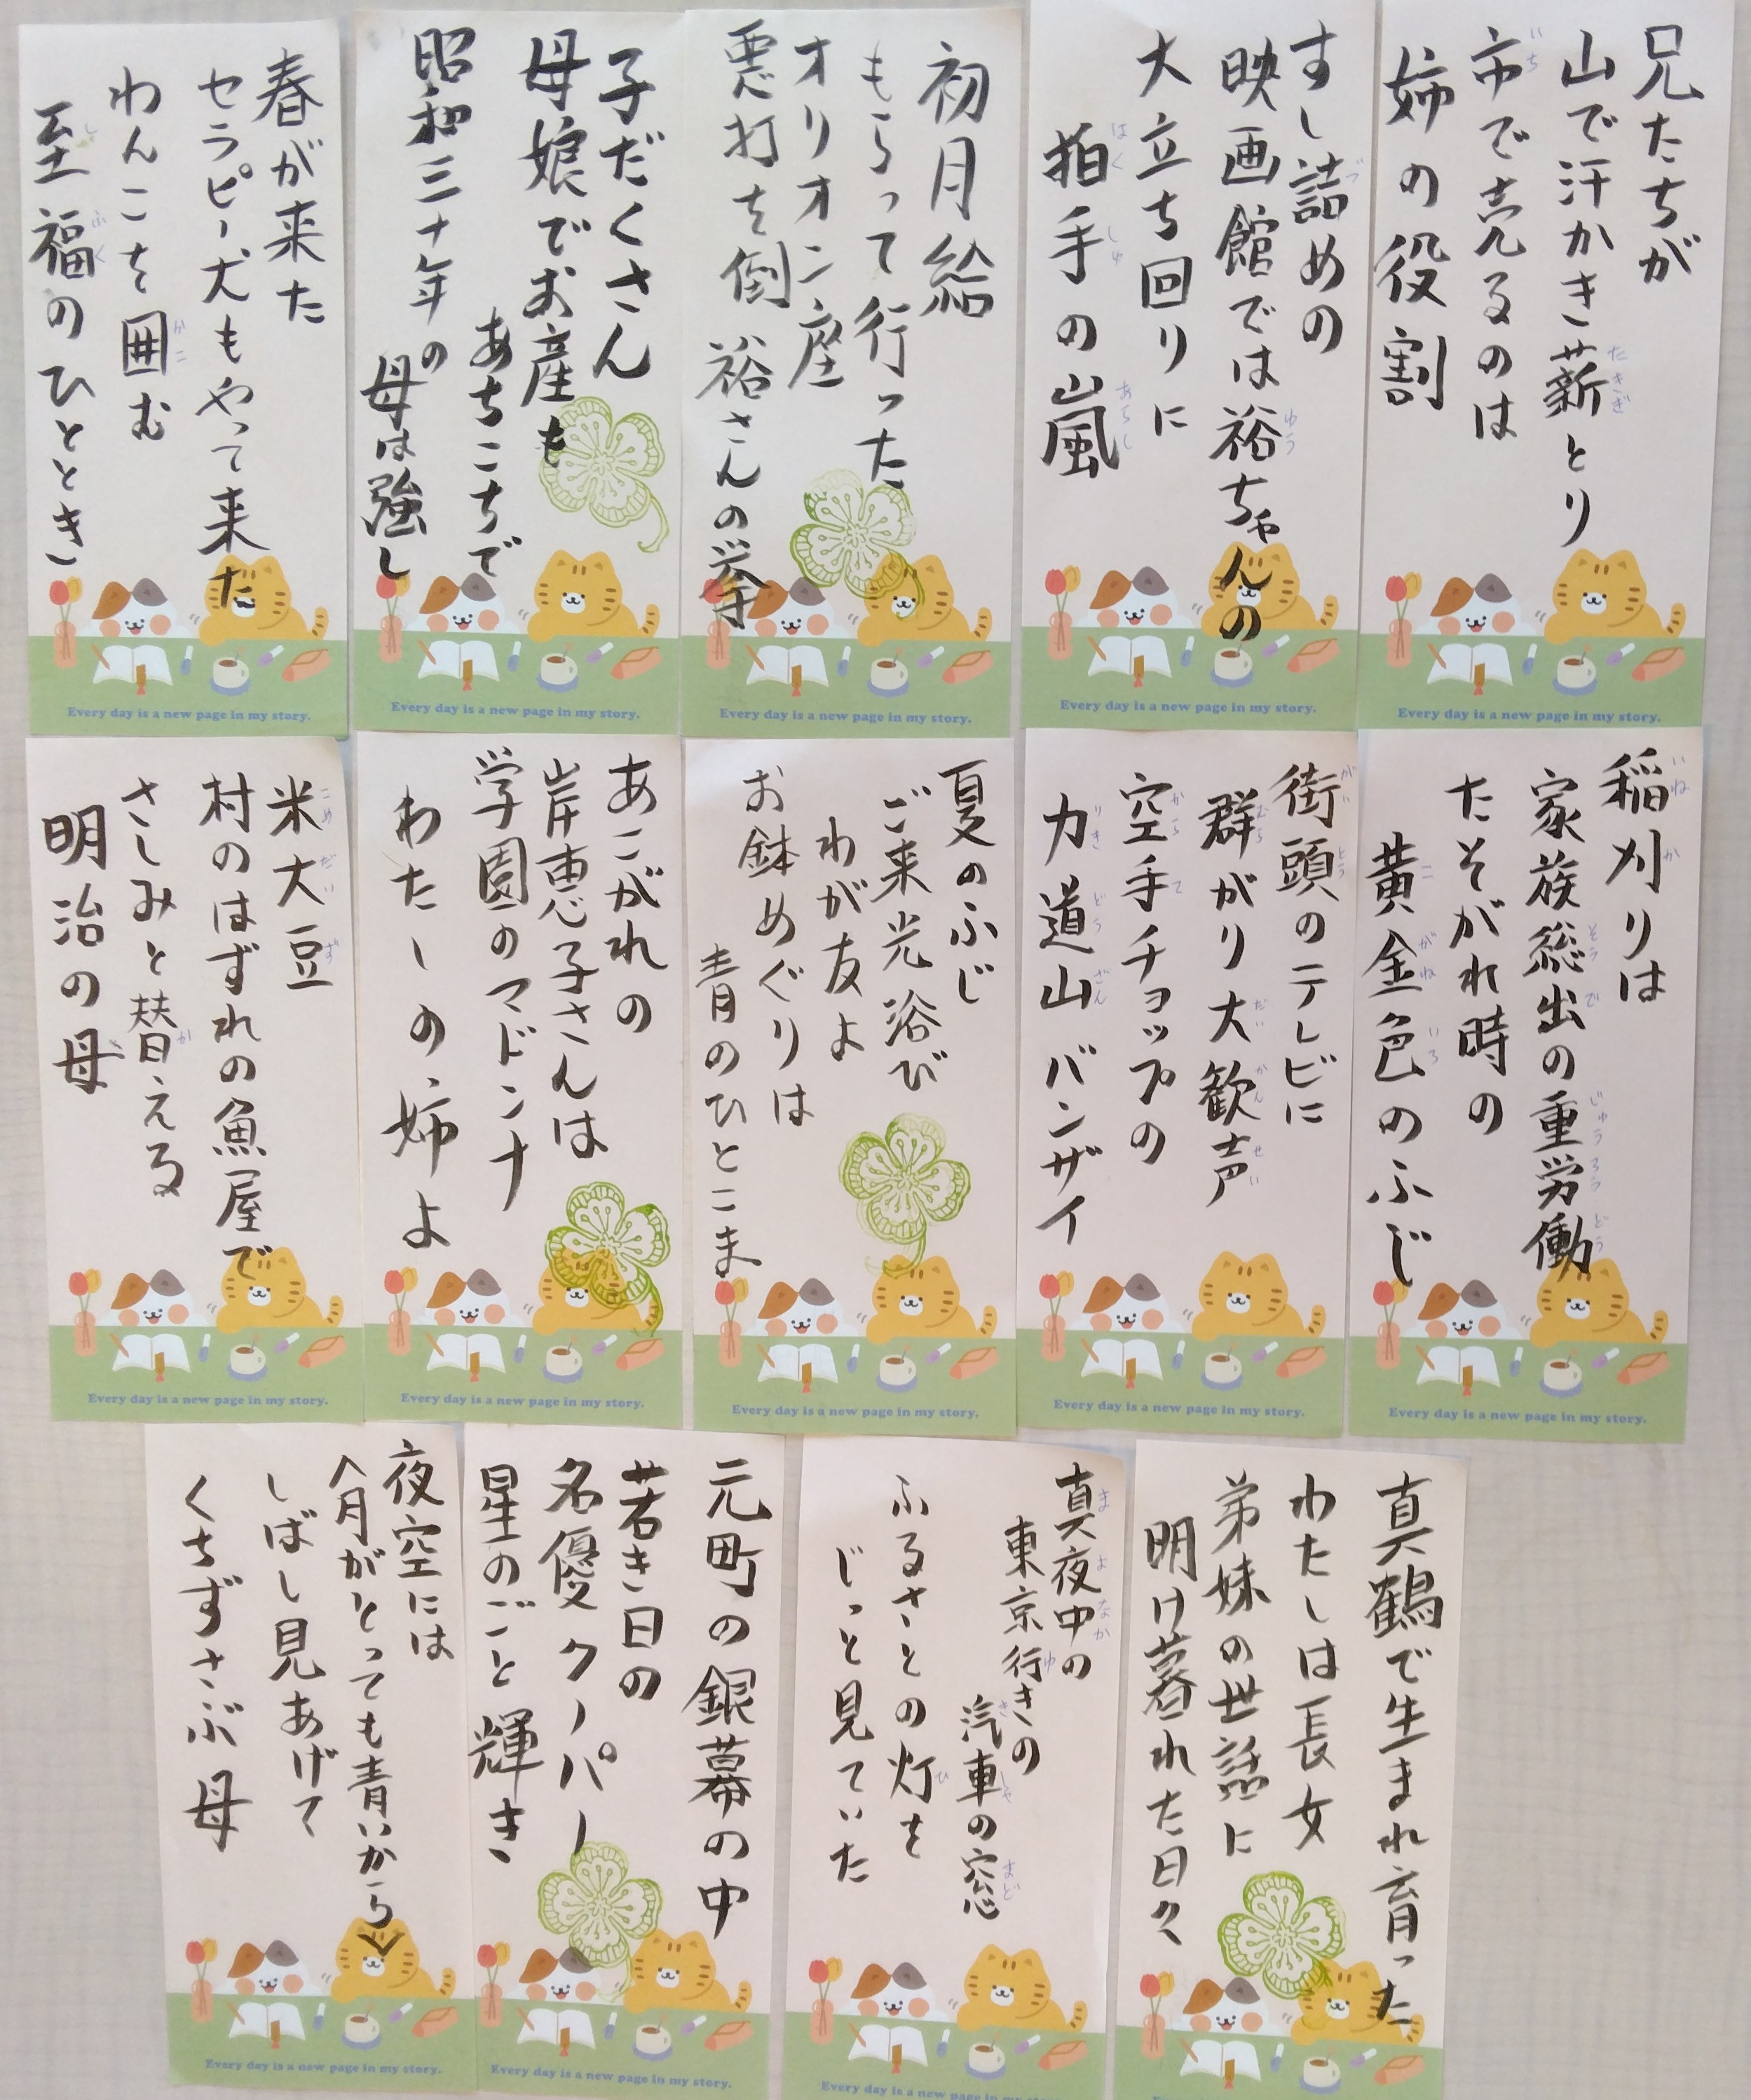 兄たちが
山で汗かき薪とり
たきぎ
市で売るのは
いち
姉の役割
すし詰めの
づ
映画館では裕ちゃんの
ゆう
大立ち回りに
拍手の嵐
はくしゅ
あらし
初月給
もらって行った
オリオン座
悪打を倒裕さんの挙
子だくさん
母娘でお産も
あちこちで
昭和三十年の
母は強し
春が来た
セラピー犬もやって来た
わんこを囲む
かこ
至福のひととき
しふく
Every day is a new page in my story.
Every day is a new page in my story.
Every day is a new page in my story.
Every day is a new page in my story.
Every day is a new page in my story.
稲刈りは
いねか
家族総出の重労働
そうで
じゅうろうどう
たそがれ時の
黄金色のふじ
こがねいろ
街頭のテレビに
がいとう
群がり大歓声
むら
だいかんせい
空手チョップの
からて
力道山バンザイ
りきどうざん
夏のふじ
ご来光浴び
わが友よ
お鉢めぐりは
青のひとこま
あこがれの
岸惠子さんは
学園のマドンナ
わたしの姉よ
米大豆
こめだいず
村のはずれの魚屋で
さしみと替える
か
明治の母
Every day is a new page in my story.
Every day is a new page in my story.
Every day is a new page in my story.
Every day is a new page in my story.
Every day is a new page in my story.
真鶴で生まれ育った
わたしは長女
弟妹の世話に
明け暮れた日々
真夜中の
まよなか
東京行きの
ゆ
汽車の窓
きしゃ
まど
ふるさとの灯を
ひ
じっと見ていた
元町の銀幕の中
若き日の
名優クーパー
星のごと輝き
夜空には
〈月がとっても青いから〉
しばし見あげて
くちずさぶ母
Every day is a new page in my story.
Every day is a new page in my story.
Every day is a new page in my story.